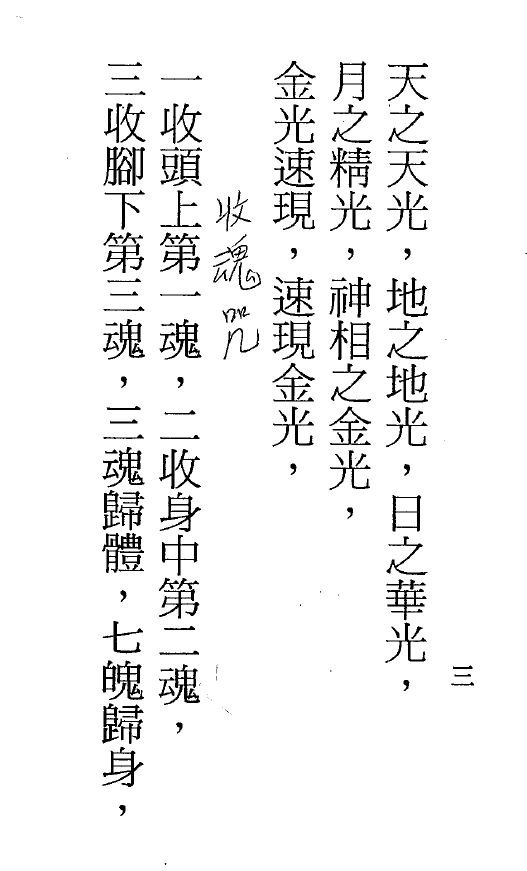 三
天之天光，地之地光，日之華光，
月之精光，神相之金光，
金光速現，速現金光，
收魂咒
一收頭上第一魂，二收身中第二魂，
三收腳下第三魂，三魂歸體，七魄歸身，